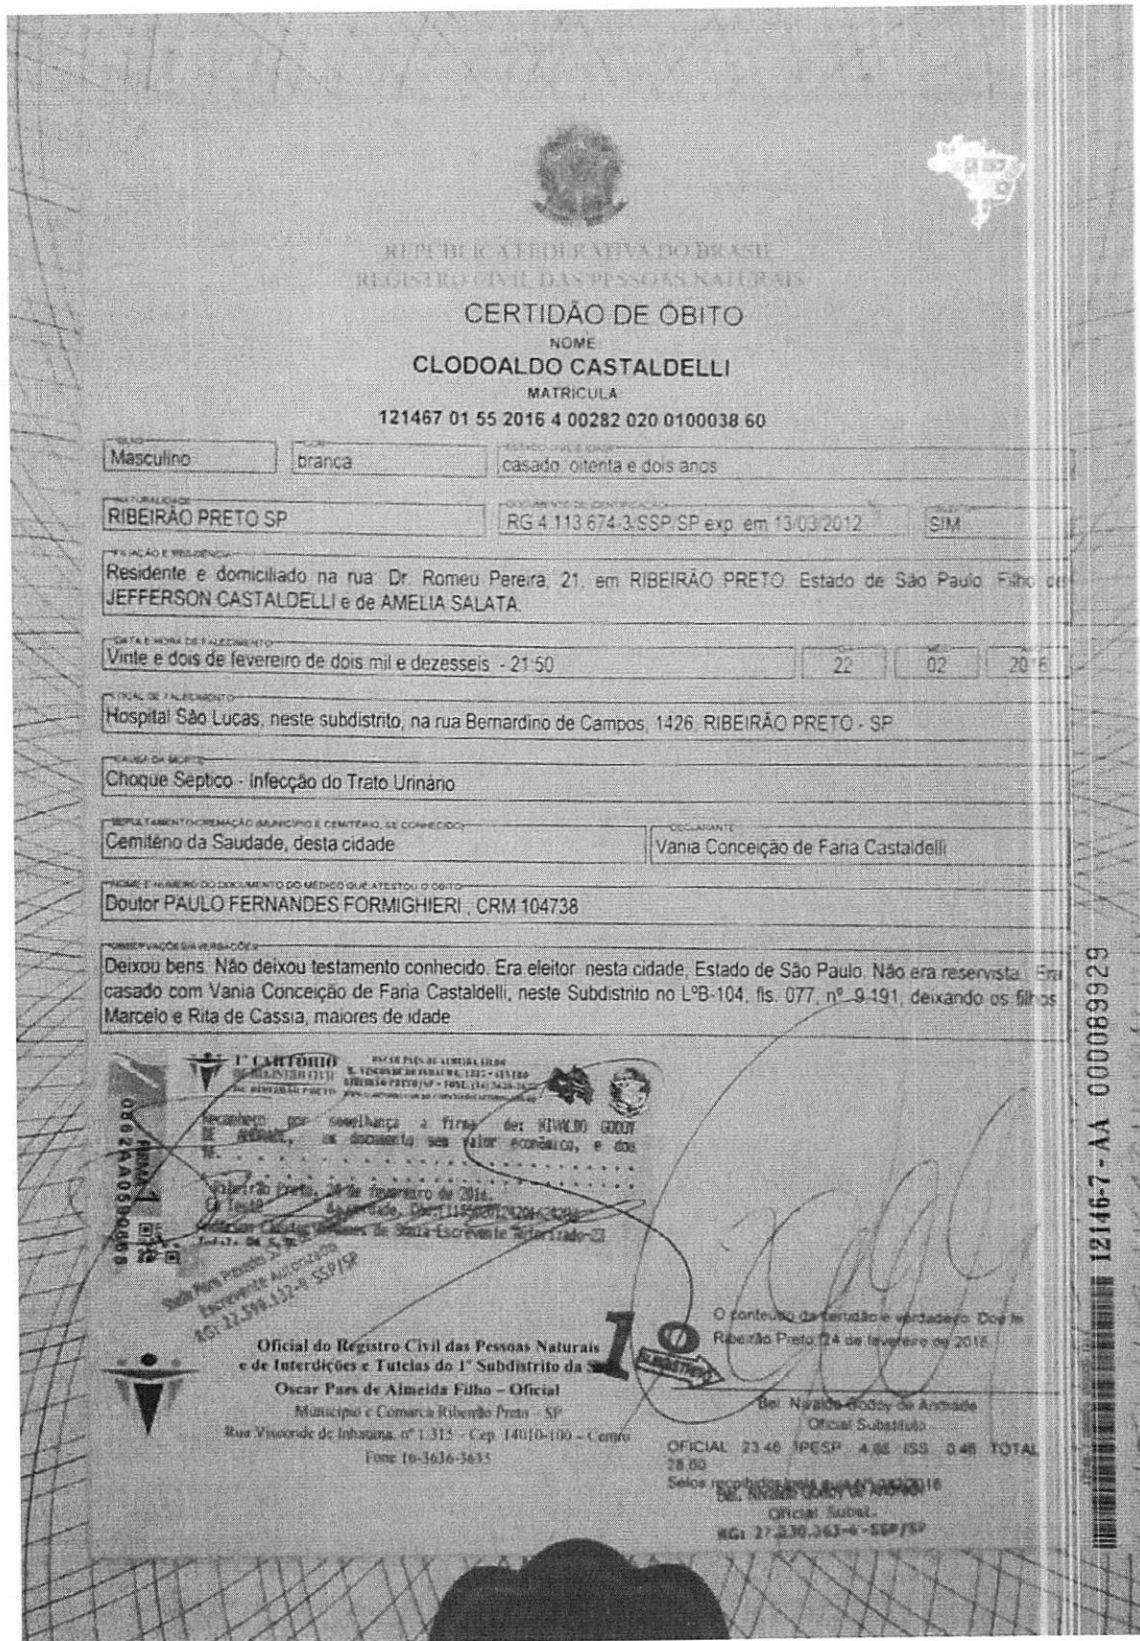 REPÚBLICA FEDERATIVA DO BRASIL
REGISTRO CIVIL DAS PESSOAS NATURAIS
CERTIDÃO DE ÓBITO
NOME
CLODOALDO CASTALDELLI
MATRÍCULA
121467 01 55 2016 4 00282 020 0100038 60
Masculino branca casado, oitenta e dois anos
NATURALIDADE DOCUMENTO DE IDENTIFICAÇÃO
RIBEIRÃO PRETO SP RG 4.113.674-3/SSP/SP exp. em 13/03/2012 SIM
FILIAÇÃO E RESIDÊNCIA
Residente e domiciliado na rua: Dr. Romeu Pereira, 21, em RIBEIRÃO PRETO Estado de São Paulo Filho de
JEFFERSON CASTALDELLI e de AMELIA SALATA.
DATA E HORA DE FALECIMENTO
Vinte e dois de fevereiro de dois mil e dezesseis - 21:50 22 02 2016
LOCAL DE FALECIMENTO
Hospital São Lucas, neste subdistrito, na rua Bernardino de Campos, 1426, RIBEIRÃO PRETO - SP
CAUSA DA MORTE
Choque Septico - Infecção do Trato Urinário
SEPULTAMENTO/CREMAÇÃO (MUNICÍPIO E CEMITÉRIO, SE CONHECIDO) DECLARANTE
Cemitério da Saudade, desta cidade Vania Conceição de Faria Castaldelli
NOME E NÚMERO DO DOCUMENTO DO MÉDICO QUE ATESTOU O ÓBITO
Doutor PAULO FERNANDES FORMIGHIERI , CRM 104738
OBSERVAÇÕES/AVERBAÇÕES
Deixou bens. Não deixou testamento conhecido. Era eleitor nesta cidade, Estado de São Paulo. Não era reservista. Era
casado com Vania Conceição de Faria Castaldelli, neste Subdistrito no LºB-104, fls. 077, nº 9.191, deixando os filhos
Marcelo e Rita de Cássia, maiores de idade
1º CARTÓRIO OSCAR PAES DE ALMEIDA FILHO
DE REGISTRO CIVIL R. VISCONDE DE INHAUMA, 1315 - CENTRO
DE RIBEIRÃO PRETO
Reconheço por semelhança a firma de: NIVALDO GODOY
DE ANDRADE, em documento sem valor econômico, e dou
fé.
Ribeirão Preto, 24 de fevereiro de 2016.
de Souza-Escrevente Autorizado
FIRMA 1
0862AA0590868
Escrevente Autorizado
Oficial do Registro Civil das Pessoas Naturais
e de Interdições e Tutelas do 1º Subdistrito da
Oscar Paes de Almeida Filho – Oficial
Município e Comarca Ribeirão Preto – SP
Rua Visconde de Inhauma, nº 1.315 – Cep. 14010-100 – Centro
Fone 16-3636-3635
1º
SUBDISTRITO
O conteúdo da certidão é verdadeiro. Dou fé
Ribeirão Preto, 24 de fevereiro de 2016
Bel. Nivaldo Godoy de Andrade
Oficial Substituto
OFICIAL 23.46 IPESP 4.68 ISS 0.46 TOTAL
28.60
Bel. Nivaldo Godoy de Andrade
Oficial Subst.
RG: 27.330.363-6-SSP/SP
12146-7 - AA 000089929